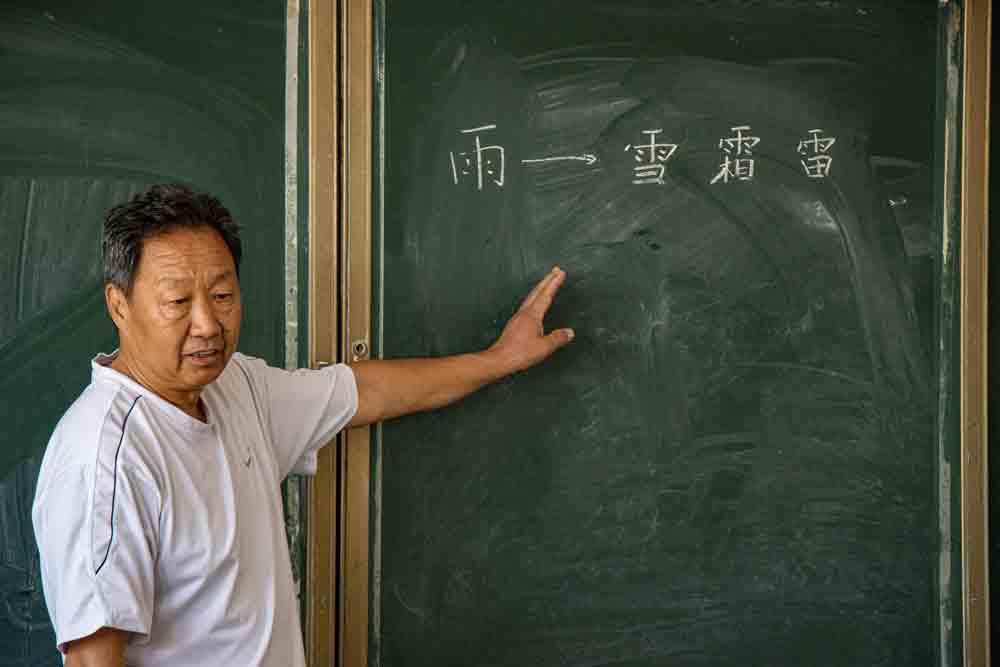 雨→雪霜雷